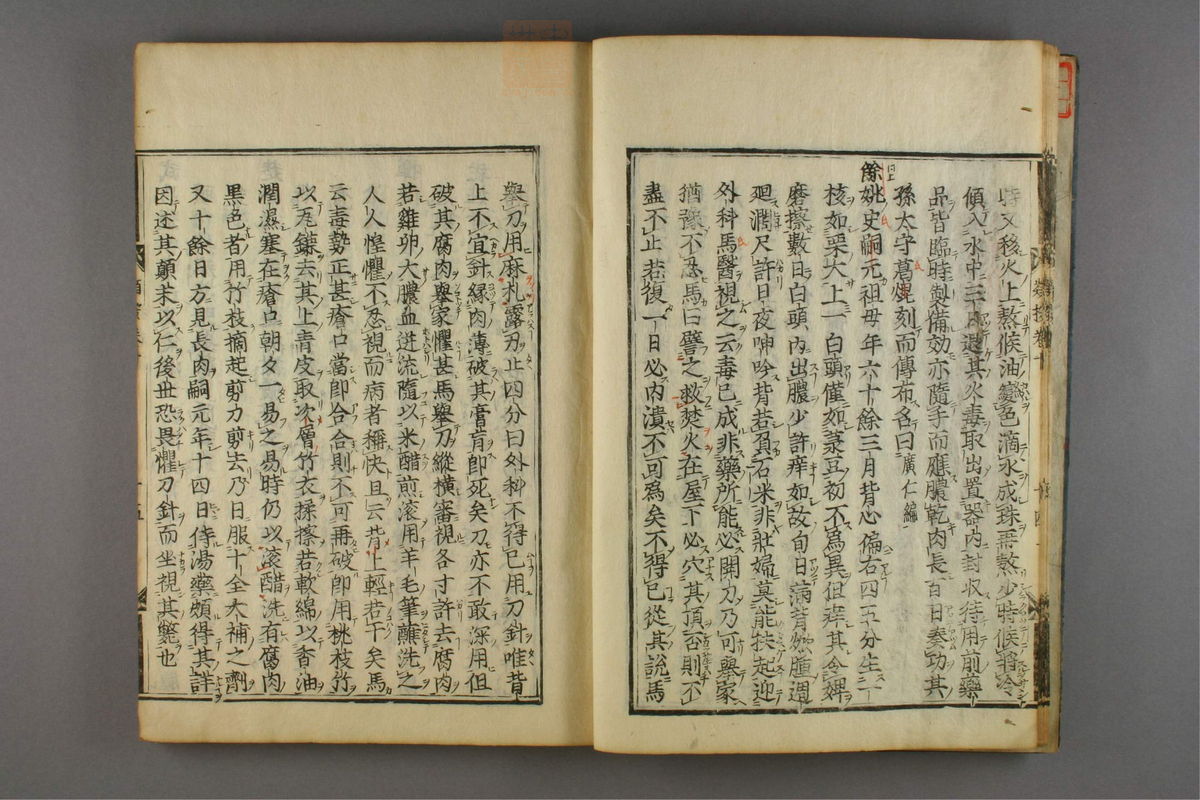 時又移火上熬候油變色滴水成珠再熬少時候將冷
傾入水中三日退其火毒取出置器內封収待用前藥
品皆臨時製備効亦隨手而應膿乾肉長百日奏功其
孫太守葛焜刻而傳布名曰廣仁編
餘姚史嗣元祖母年六十餘三月背心偏右四五分生一
核如栗大上一白頭僅如菉豆初不為異但痒其令婢
磨擦數日白頭內出膿少許痒如故旬日滿背燃腫週
廻濶尺許日夜呻吟背若負石米非壯婦莫能扶起迎
外科馬醫視之云毒已成非藥所能必開刀乃可舉家
猶豫不忍馬曰譬之救焚火在屋下必穴其頂否則不
盡不止若復一日必內潰不可為矣不得已從其說馬
舉刀用麻札露刃止四分曰外科不得已用刀針唯背
上不宜針緣肉薄破其膏肓即死矣刀亦不敢深用但
破其腐肉舉家懼甚馬舉刀縱橫審視各寸許去腐肉
若雞卵大膿血迸流隨以米醋煎滚用羊毛筆蘸洗之
人人惶懼不忍視而病者稱快且云背上輕若干矣馬
云毒勢正甚瘡口當即合合則不可再破即用桃枝竹
以瓦鎌去其上青皮取次層竹衣揉擦若軟綿以香油
潤濕塞在瘡口朝夕一易之易時仍以滚醋洗有腐肉
黒色者用竹枝摘起剪刀剪去乃日服十全大補之劑
又十餘日方見長肉嗣元年十四日侍湯藥頗得其詳
因述其顛末以仁後丗恐畏懼刀針而坐視其斃也